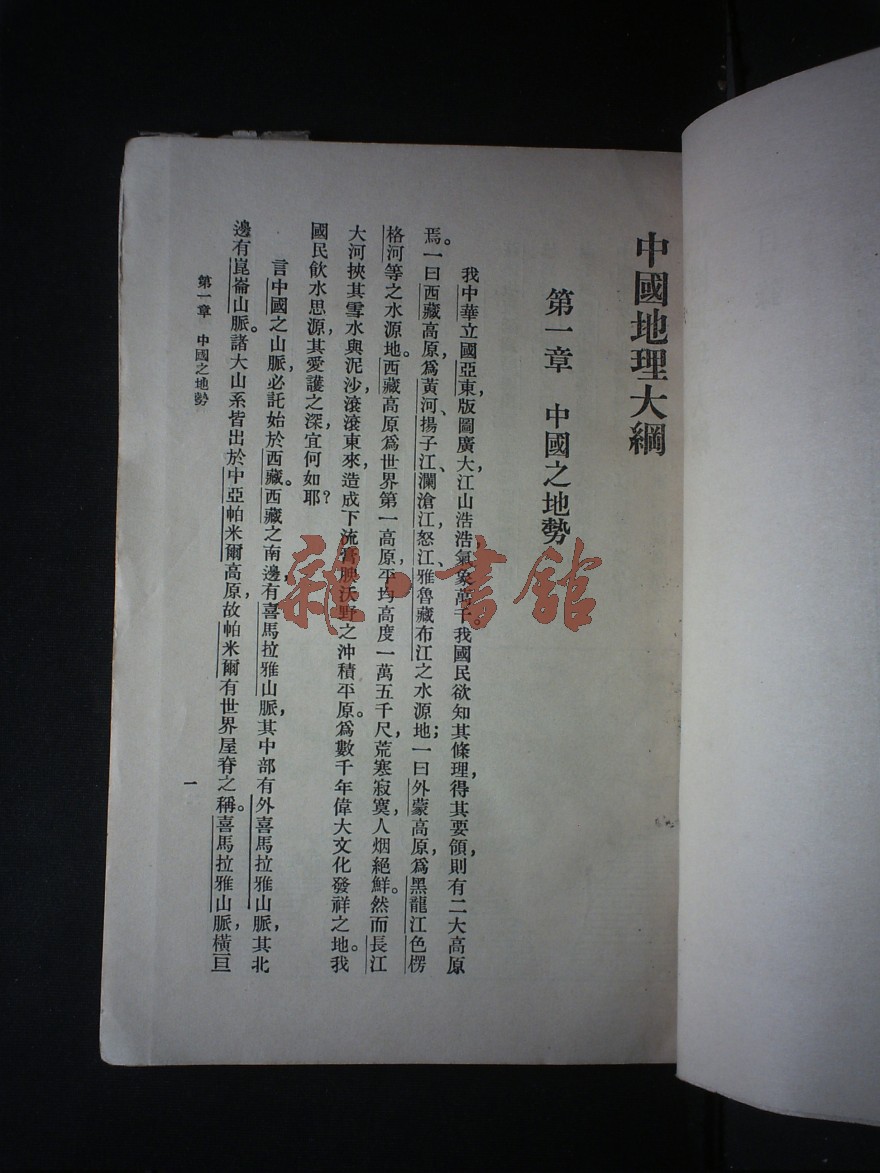 中國地理大綱
第一章　中國之地勢
我中華立國亞東，版圖廣大，江山浩浩，氣象萬千。我國民欲知其條理，得其要領，則有二大高原
焉。一曰西藏高原，爲黃河、揚子江、瀾滄江、怒江、雅魯藏布江之水源地；一曰外蒙高原，爲黑龍江色楞
格河等之水源地。西藏高原爲世界第一高原，平均高度一萬五千尺，荒寒寂寞，人烟絕鮮。然而長江
大河挾其雪水與泥沙，滾滾東來，造成下流膏腴沃野之沖積平原。爲數千年偉大文化發祥之地。我
國民飲水思源，其愛護之深，宜何如耶？
言中國之山脈，必託始於西藏。西藏之南邊，有喜馬拉雅山脈，其中部有外喜馬拉雅山脈，其北
邊有崑崙山脈。諸大山系皆出於中亞帕米爾高原，故帕米爾有世界屋脊之稱。喜馬拉雅山脈，橫亘
第一章　中國之地勢
一
雜·書館